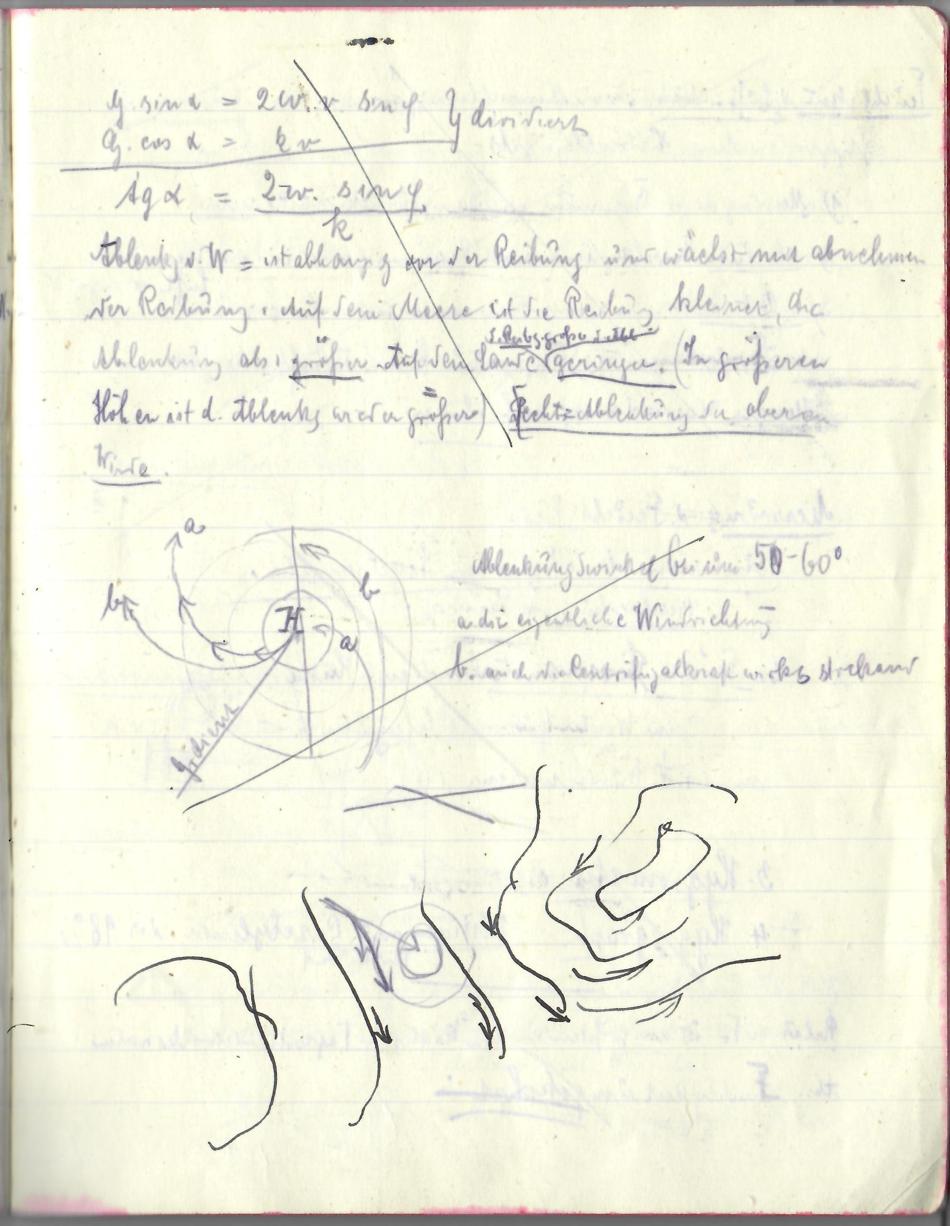 G. sin α = 2w. v sin φ } dividiert
G. cos α = kv
tg α = 2w. sin φ
k
Ablenkg d. W = ist abhängig von der Reibung und wächst mit abnehmen
der Reibung. Auf dem Meere ist die Reibung kleiner, die
d. Reibg größer d. Abl
Ablenkung also größer. Auf dem Lande geringer. (In größeren
Höhen ist d. Ablenkg wieder größer) Rechts=Ablenkung der oberen
Winde.
a
b
H
b
a
Gradient
Ablenkungswinkel bei uns 50-60°
a die eigentliche Windrichtung
b. auch die Centrifugalkraft wirkt